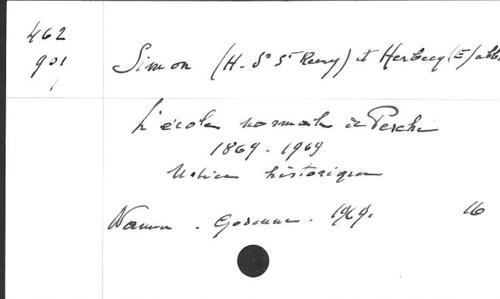 462
901
Simon (H. St Remy) et Herbecq (E) abbé
L'école normale de Pesche
1869 - 1969
Notice historique
Namur. Godenne. 1969. 16